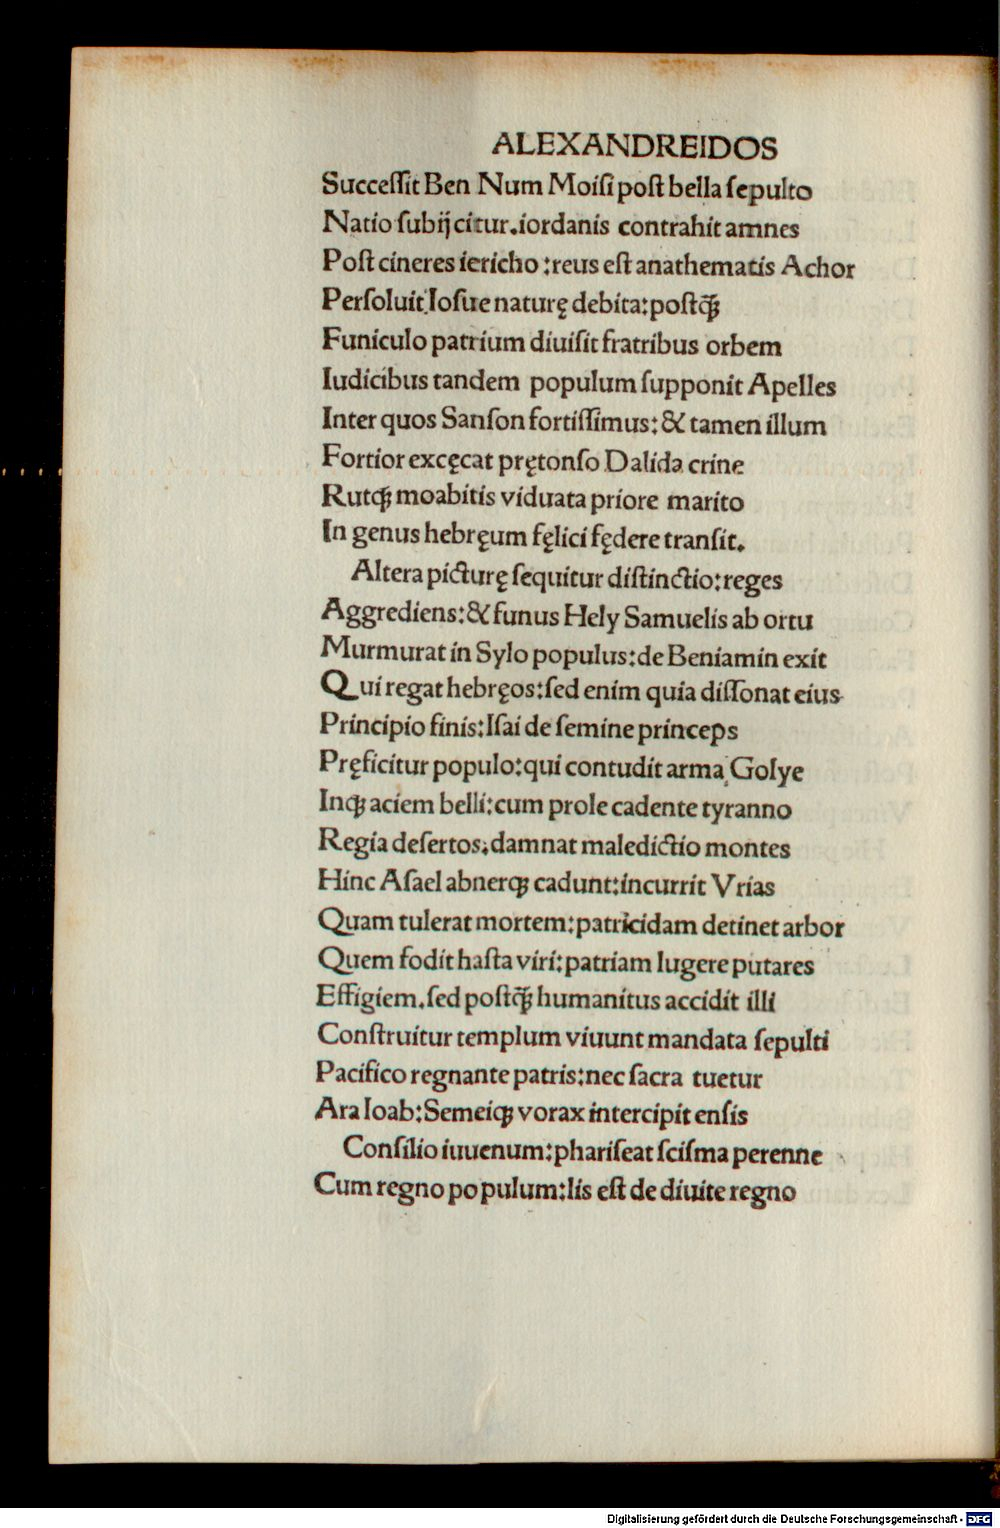 ALEXANDREIDOS
Succeſſit Ben Num Moiſi poſt bella ſepulto
Natio ſubijcitur.iordanis contrahit amnes
Poſt cineres iericho:reus eſt anathematis Achor
Perſoluit Ioſue naturę debita:poſtq̄ꝫ
Funiculo patrium diuiſit fratribus orbem
Iudicibus tandem populum ſupponit Apelles
Inter quos Sanſon fortiſſimus:& tamen illum
Fortior excęcat prętonſo Dalida crine
Rutqꝫ moabitis viduata priore marito
In genus hebręum fęlici fędere tranſit.
Altera picturę ſequitur diſtinctio:reges
Aggrediens:& funus Hely Samuelis ab ortu
Murmurat in Sylo populus:de Beniamin exit
Qui regat hebręos:ſed enim quia diſſonat eius
Principio finis:Iſai de ſemine princeps
Pręficitur populo:qui contudit arma Golye
Inqꝫ aciem belli:cum prole cadente tyranno
Regia deſertos.damnat maledictio montes
Hinc Aſael abnerqꝫ cadunt:incurrit Vrias
Quam tulerat mortem:patricidam detinet arbor
Quem fodit haſta viri:patriam lugere putares
Effigiem.ſed poſtq̄ꝫ humanitus accidit illi
Conſtruitur templum viuunt mandata ſepulti
Pacifico regnante patris:nec ſacra tuetur
Ara Ioab:Semeiqꝫ vorax intercipit enſis
Conſilio iuuenum:phariſeat ſciſma perenne
Cum regno populum:lis eſt de diuite regno
Digitalisierung gefördert durch die Deutsche Forschungsgemeinschaft - DFG